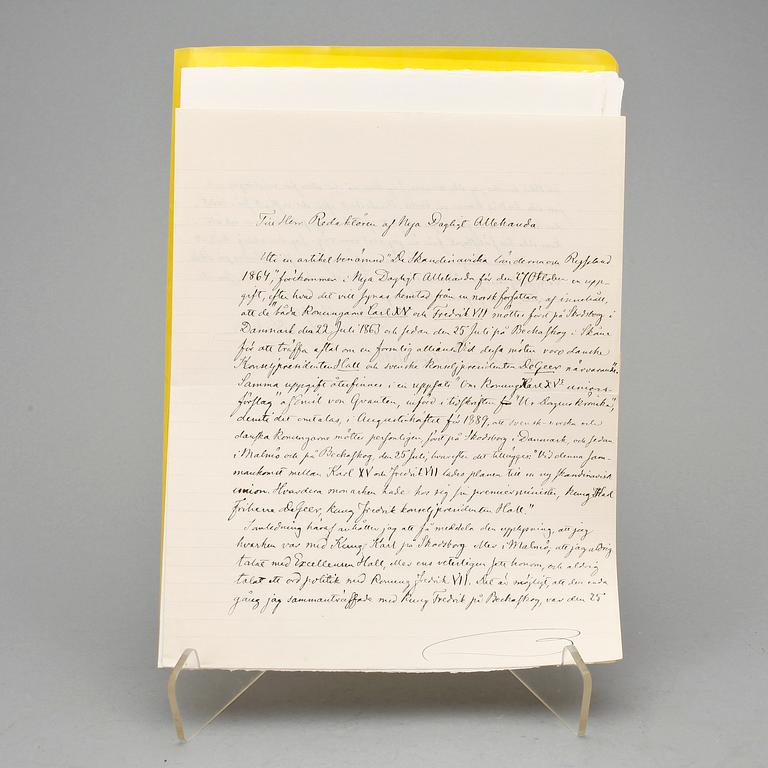 Till Herr Redaktören af Nya Dagligt Allehanda
Uti en artikel benämnd "De Skandinaviska länderna och Ryssland
1864," förekommer i Nya Dagligt Allehanda för den 27 Oktober en upp-
gift, efter hvad det vill synas hemtad från en norsk författare, af innehåll,
att de "båda Konungarne Carl XV och Fredrik VII möttes först på Skodsborg i
Danmark den 22 Juli 1863 och sedan den 25 Juli på Beckaskog i Skåne
för att träffa aftal om en formlig allians. Vid dessa möten voro danske
Konseljpresidenten Hall och svenske konseljpresidenten DeGeer närvarande".
Samma uppgift återfinnes i en uppsats "Om Konung Karl XVs unions-
förslag" af Emil von Qvanten, införd i tidskriften "Ur Dagens Krönika",
deruti det omtalas, i Augustihäftet för 1889, att svensk-norska och
danska konungarne möttes personligen, först på Skodsborg i Danmark, och sedan
i Malmö och på Beckaskog, den 25 Juli, hvarefter det tillägges: "Vid denna sam-
mankomst mellan Karl XV och Fredrik VII lades planen till en ny skandinavisk
union. Hvardera monarken hade hos sig sin premierminister, kung Karl
friherre DeGeer, kung Fredrik konseljpresidenten Hall."
I anledning häraf anhåller jag att få meddela den upplysning, att jag
hvarken var med Kung Karl på Skodsborg eller i Malmö, att jag aldrig
talat med Excellensen Hall, eller ens veterligen sett honom, och aldrig
talat ett ord politik med Konung Fredrik VII. Det är möjligt, att den enda
gång jag sammanträffade med kung Fredrik på Beckaskog, var den 25